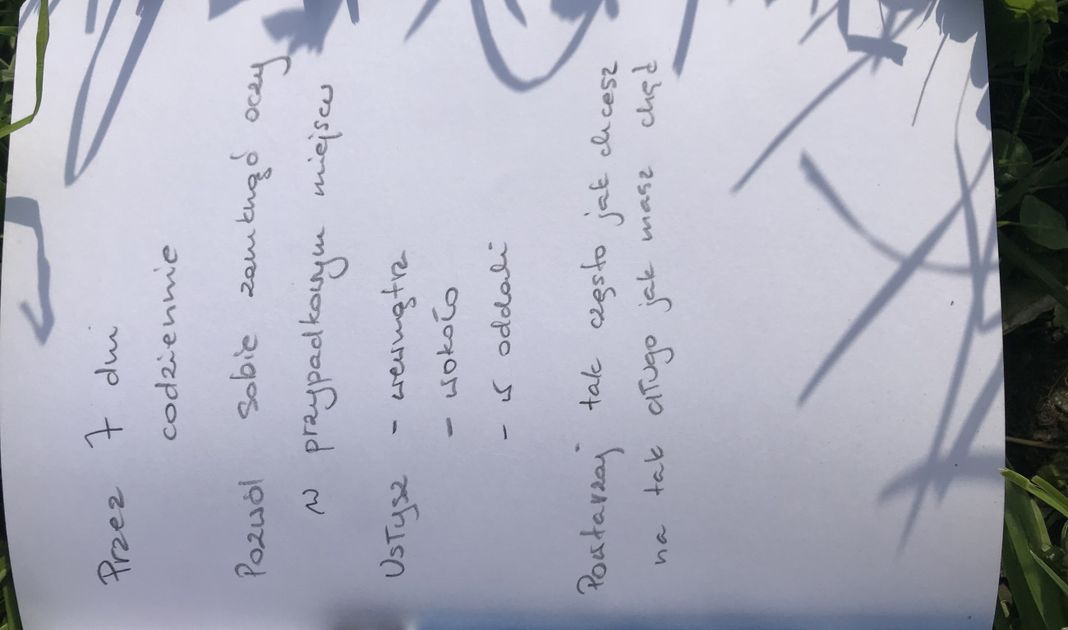 Przez 7 dni
codziennie
Pozwól sobie zamknąć oczy
w przypadkowym miejscu
Usłysz - wewnątrz
- wokóło
- w oddali
Powtarzaj tak często jak chcesz
na tak długo jak masz chęć